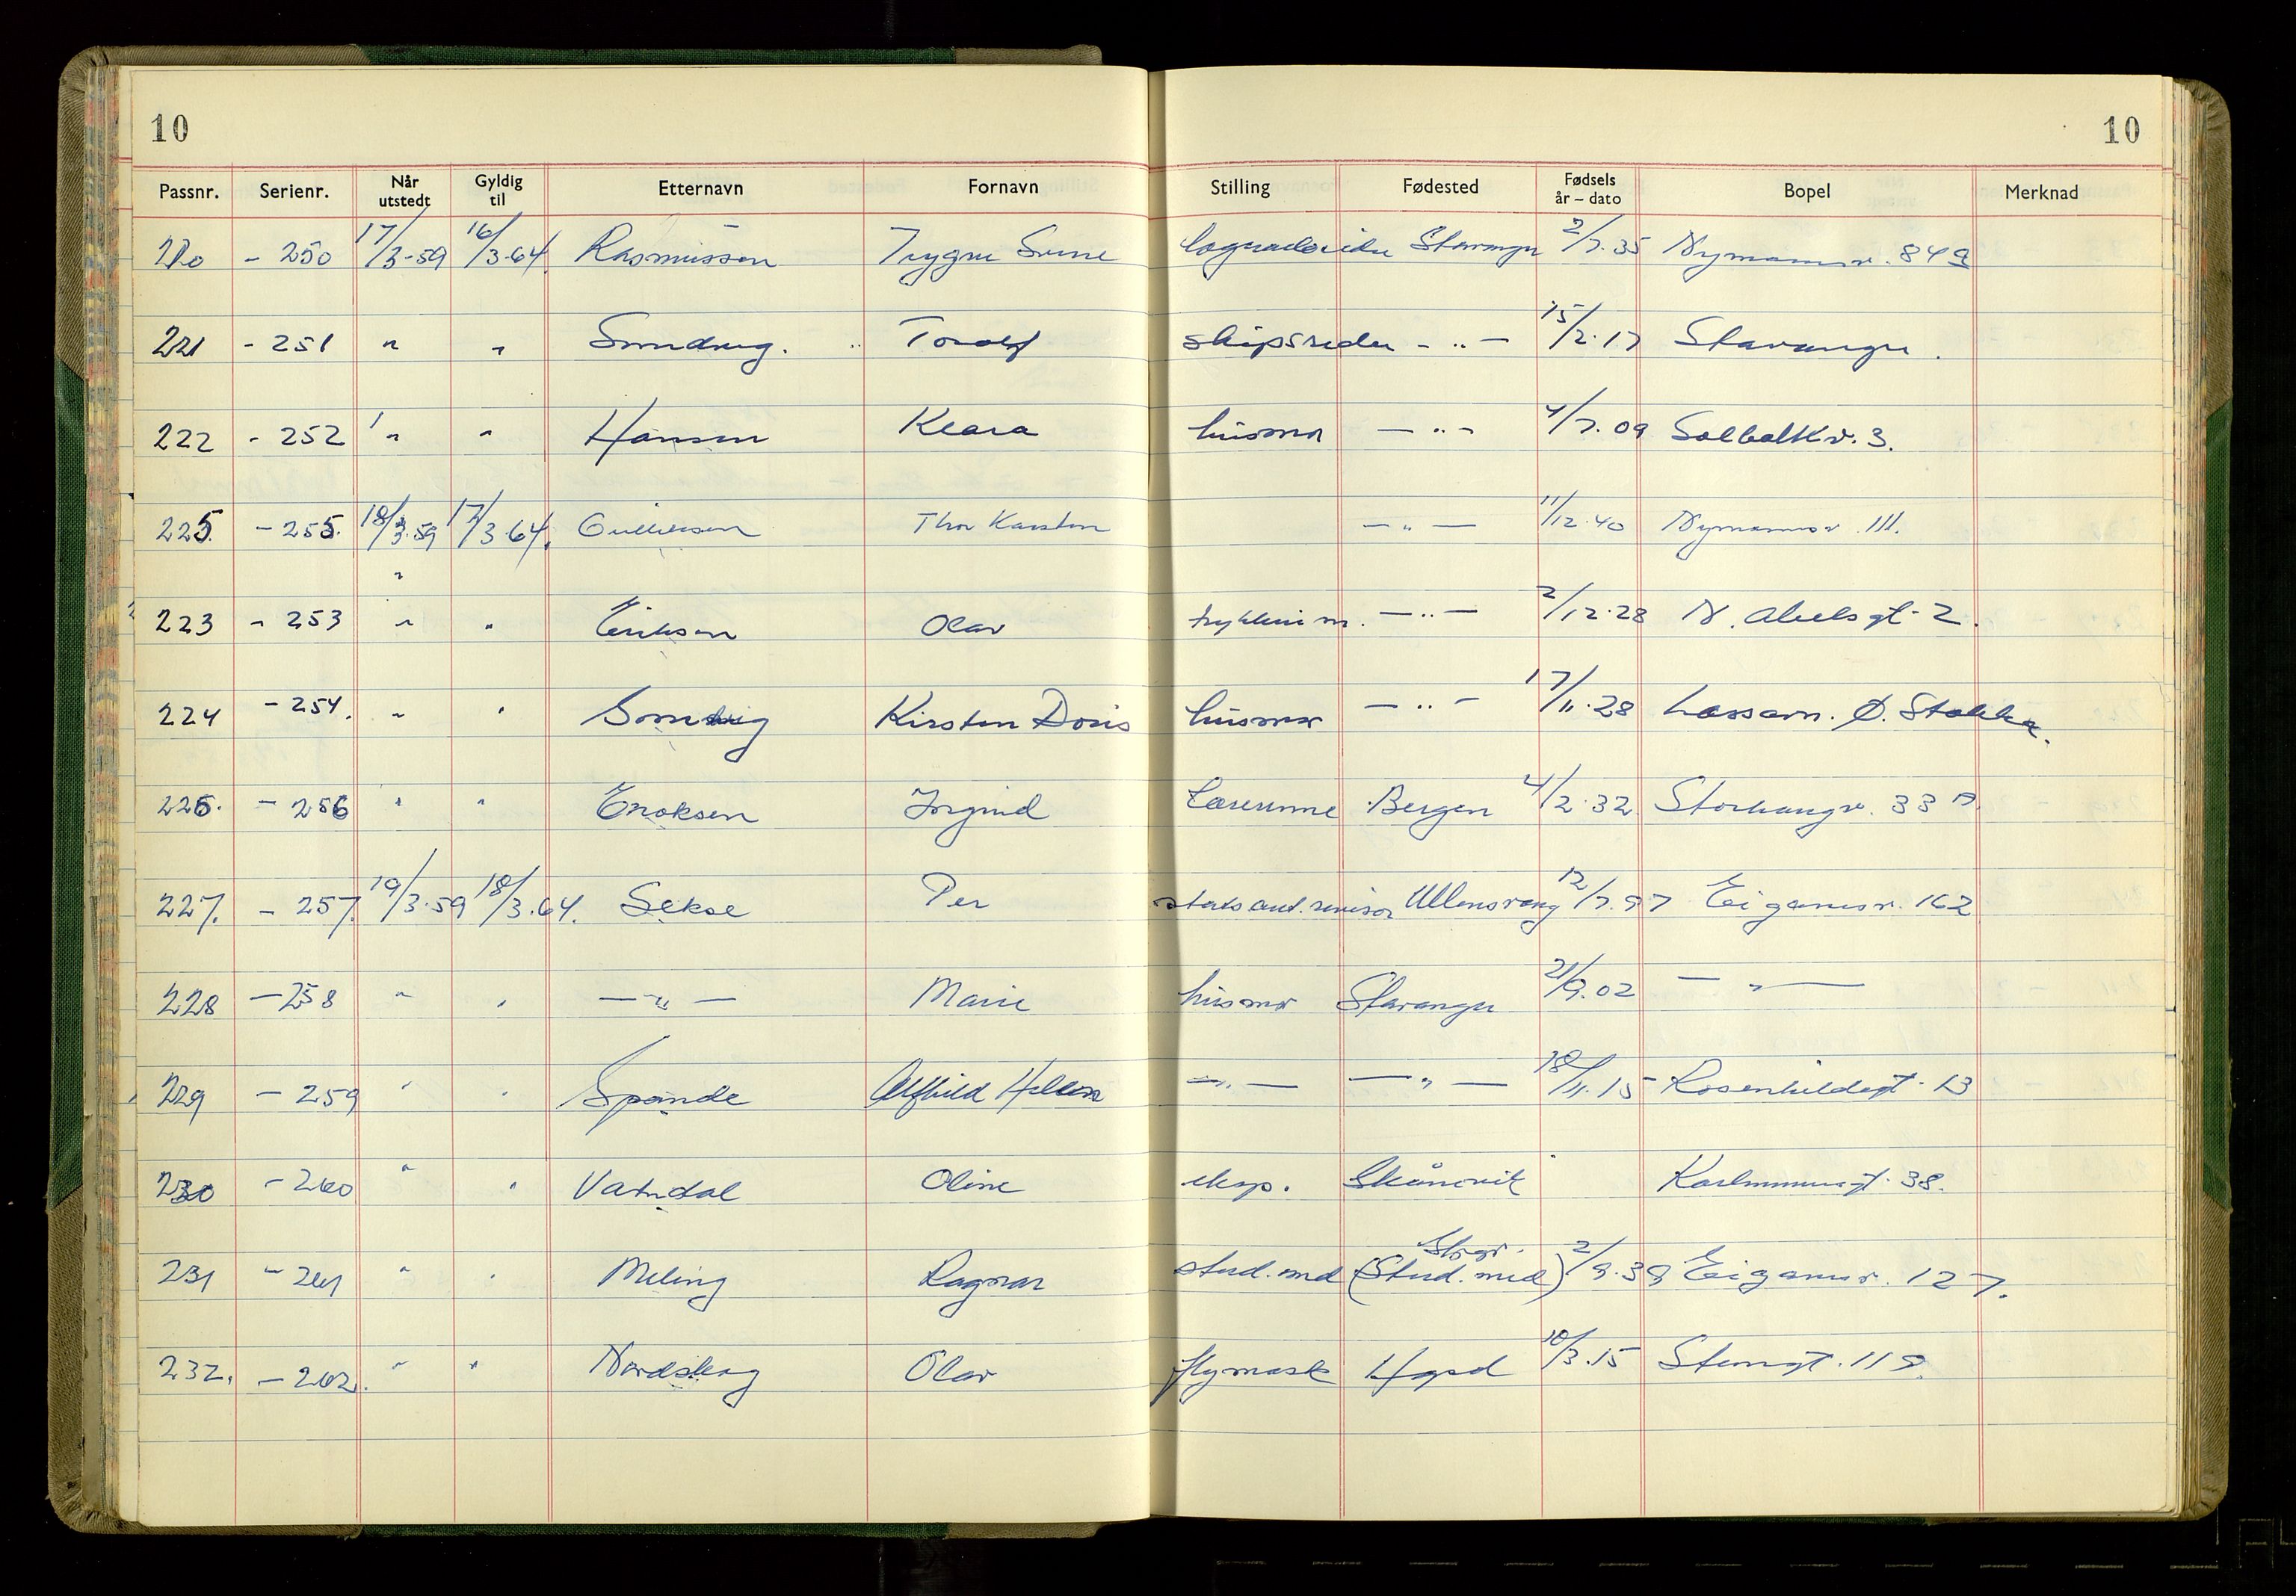 10 10
Passnr. Serienr. Når utstedt Gyldig til Etternavn Fornavn Stilling Fødested Fødsels år – dato Bopel Merknad
220 - 250 17/3-59 16/3-64. Rasmussen Trygve Sverre Stavanger 2/7.35 Nymannsv. 84
221 - 251 " " Torolf skipsreder - " - 15/2.17 Stavanger.
222 - 252 " " Hansen Klara husmor - " - 4/7.09 Solbakkv. 3.
225. - 255. 18/3.59 17/3.64. Gulliksen Thor Karsten - " - 11/12.40 Nymannsv. 111.
"
223 - 253 " " Eriksen Olav - " - 2/12.28 N. Abelsgt. 2.
224 - 254. " " Kirsten Doris husmor - " - 17/11.28 Lassarn. Ø. Stokka.
226. - 256 " " Enoksen Jorgind Lærerinne Bergen 4/2.32 Storhaugv. 33 A
227. - 257. 19/3.59 18/3.64. Sekse Per stats aut. revisor Ullensvang 12/7.97 Eiganesv. 162
228 - 258 " " - " - Marie husmor Stavanger 21/9.02 - " -
229 - 259 " " Spande Alfhild Helene - " - - " - 18/11.15 Rosenkildegt. 13
230 - 260 " " Vatndal Oline eksp. Skånevik 38.
231 - 261 " " Meling Ragnar stud. med (Stud. med) Stvgr. 2/9.39 Eiganesv. 127.
232. - 262. " " Nordskog Olav flymask Hgsd 10/3.15 Stengt. 119.